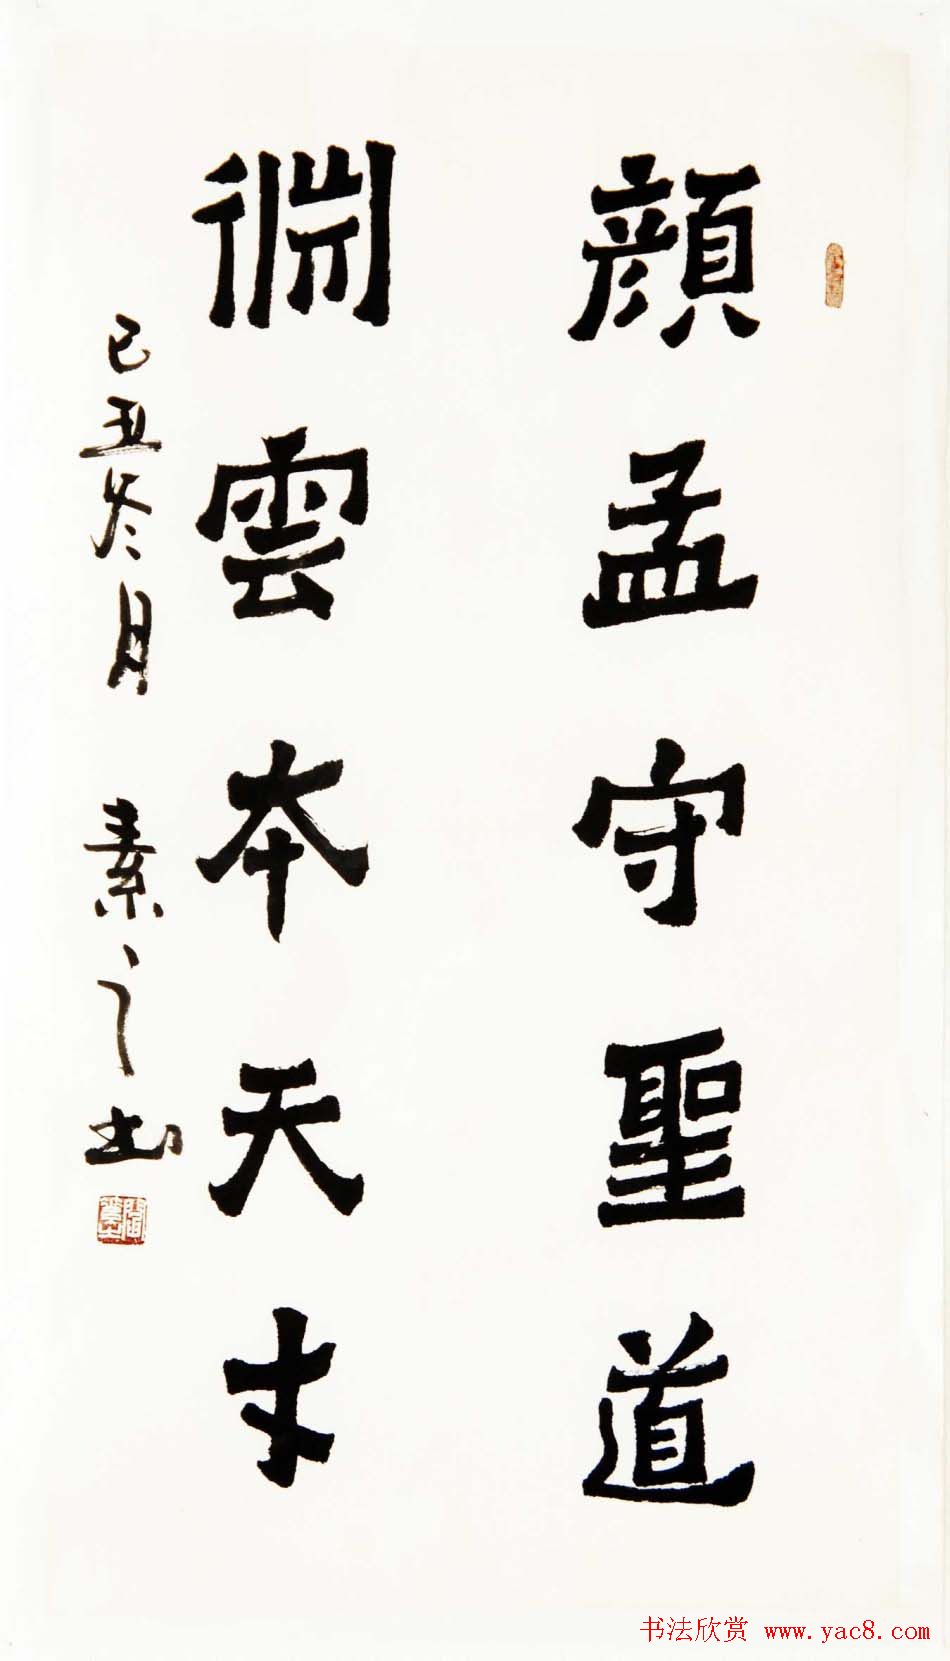 顔孟守聖道
淵雲夲天才
己丑冬月 素之书
书法欣赏 www.yac8.com